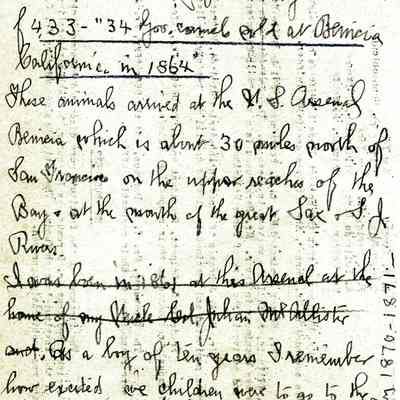 f 433 - "34 Gov. camels sold at Benicia
California in 1864"
These animals arrived at the U.S. Arsenal
Benicia which is about 30 miles north of
San Francisco on the upper reaches of the
Bay & at the mouth of the great Sac & S. J.
Rivers.
I was born in 1861 at this Arsenal at the
home of my Uncle Col. Julian McAllister
and. As a boy of ten years I remember
how excited we children were to go to the
1870-1871